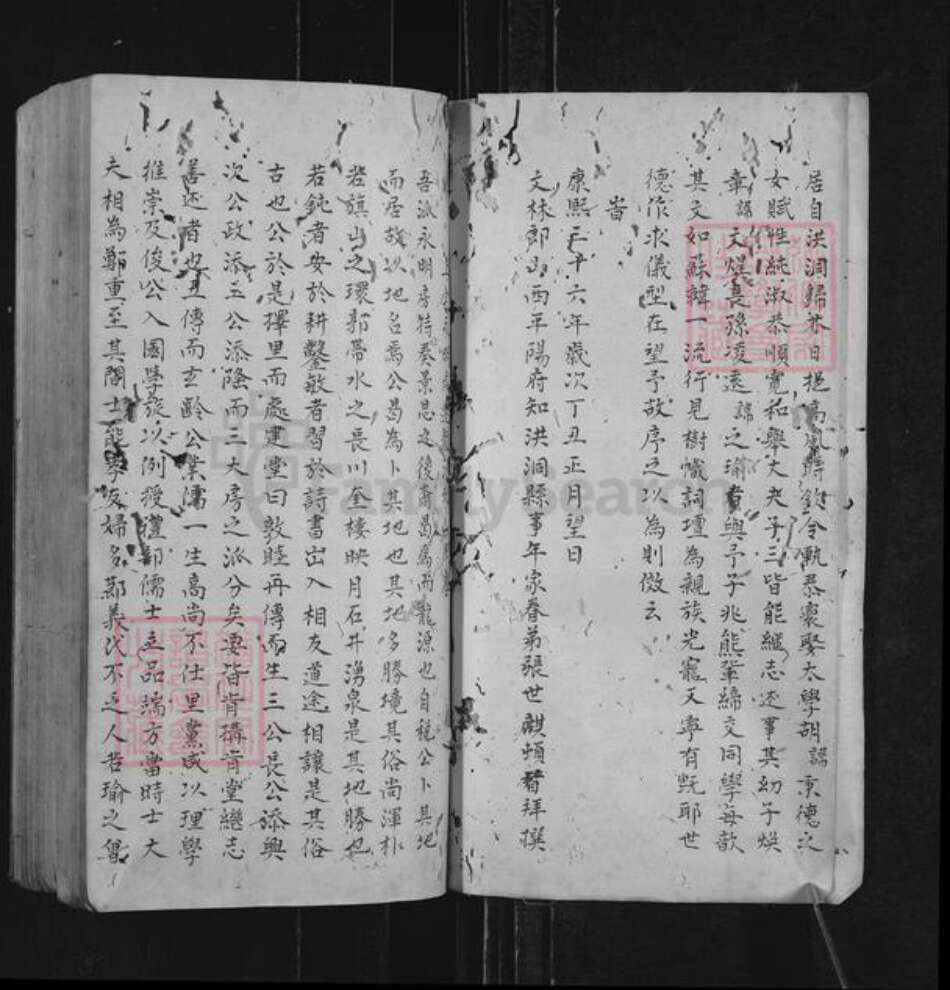 居自洪洞歸恭日挹高風時欽令執恭裹娶太學胡諱秉德之
女賦性純淑恭順寬和舉大夫子三皆能繼志述事其幼子煥
章諱文煋長孫凌遠諱之瑜者與予子兆熊鞏締交同學每歆
其文如蘇韓一流行見樹幟詞壇為親族光寵又寧有旣耶世
德作求儀型在望予故序之以為則傚云
旹
康熙三十六年歲次丁丑正月望日
文林郎山西平陽府知洪洞縣事年家眷弟張世麒頓首拜撰
吾派永明房特奏景思之後肅昌房而龍源也自稅公卜其地
而居故以地名焉公曷為卜其地也其地多勝境其俗尚渾朴
若旗山之環郭帶水之長川奎樓映月石井湧泉是其地勝也
若鈍者安於耕鑿敏者習於詩書出入相友道途相讓是其俗
古也公於是擇里而處建堂曰敦睦再傳而生三公長公添興
次公政添三公添隆而三大房之派分矣要皆肯搆肯堂繼志
善述者也五傳而玄齡公業儒一生高尚不仕里黨咸以理學
推崇及俊公入國學旋以例授禮部儒士立品端方當時士大
夫相為鄭重至其閒士能學友婦多慕義代不乏人若瑜之曾
FamilySearch